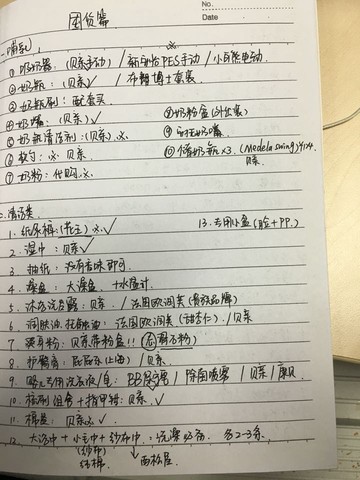 No.
Date
囤货篇
一. 哺乳
① 吸奶器:(贝亲手动) / 新安怡PES手动 / 小白熊电动
② 奶瓶:(贝亲)✓ / 布朗博士套装
③ 奶瓶刷: 配套买
④ 奶嘴:(贝亲)✓
⑤ 奶瓶清洁剂:(贝亲).
⑥ 贝亲
⑦ 奶粉: 代购
⑧ 奶粉盒(外出装)
⑨ 安抚奶嘴.
⑩ 储奶瓶×3. (Medela swing)
贝亲
二. 清洁类.
1. 纸尿裤:(花王) ✓
2. 湿巾: 贝亲✓
3. 抽纸: 没有香味即可.
4. 澡盆: 大澡盆 +水温计
5. 沐浴洗发露: 贝亲. / 法国欧润芙(贵族品牌)
6. 润肤油, 抚触油: 法国欧润芙(甜杏仁). / 贝亲
7. 爽身粉: 贝亲带粉盒!!
8. 护臀膏: 屁屁乐(上海) / 贝亲
9. / 除菌喷雾 / 贝亲 /
10. 棉棒组合 + 指甲钳: 贝亲. ✓
11. 棉签: 贝亲 ✓
12. 大浴巾 + 小毛巾 + 纱布巾: 洗澡必备. 各2-3条.
(纱布)
纯棉 西松屋
13. 专用小盆(脸+PP.)